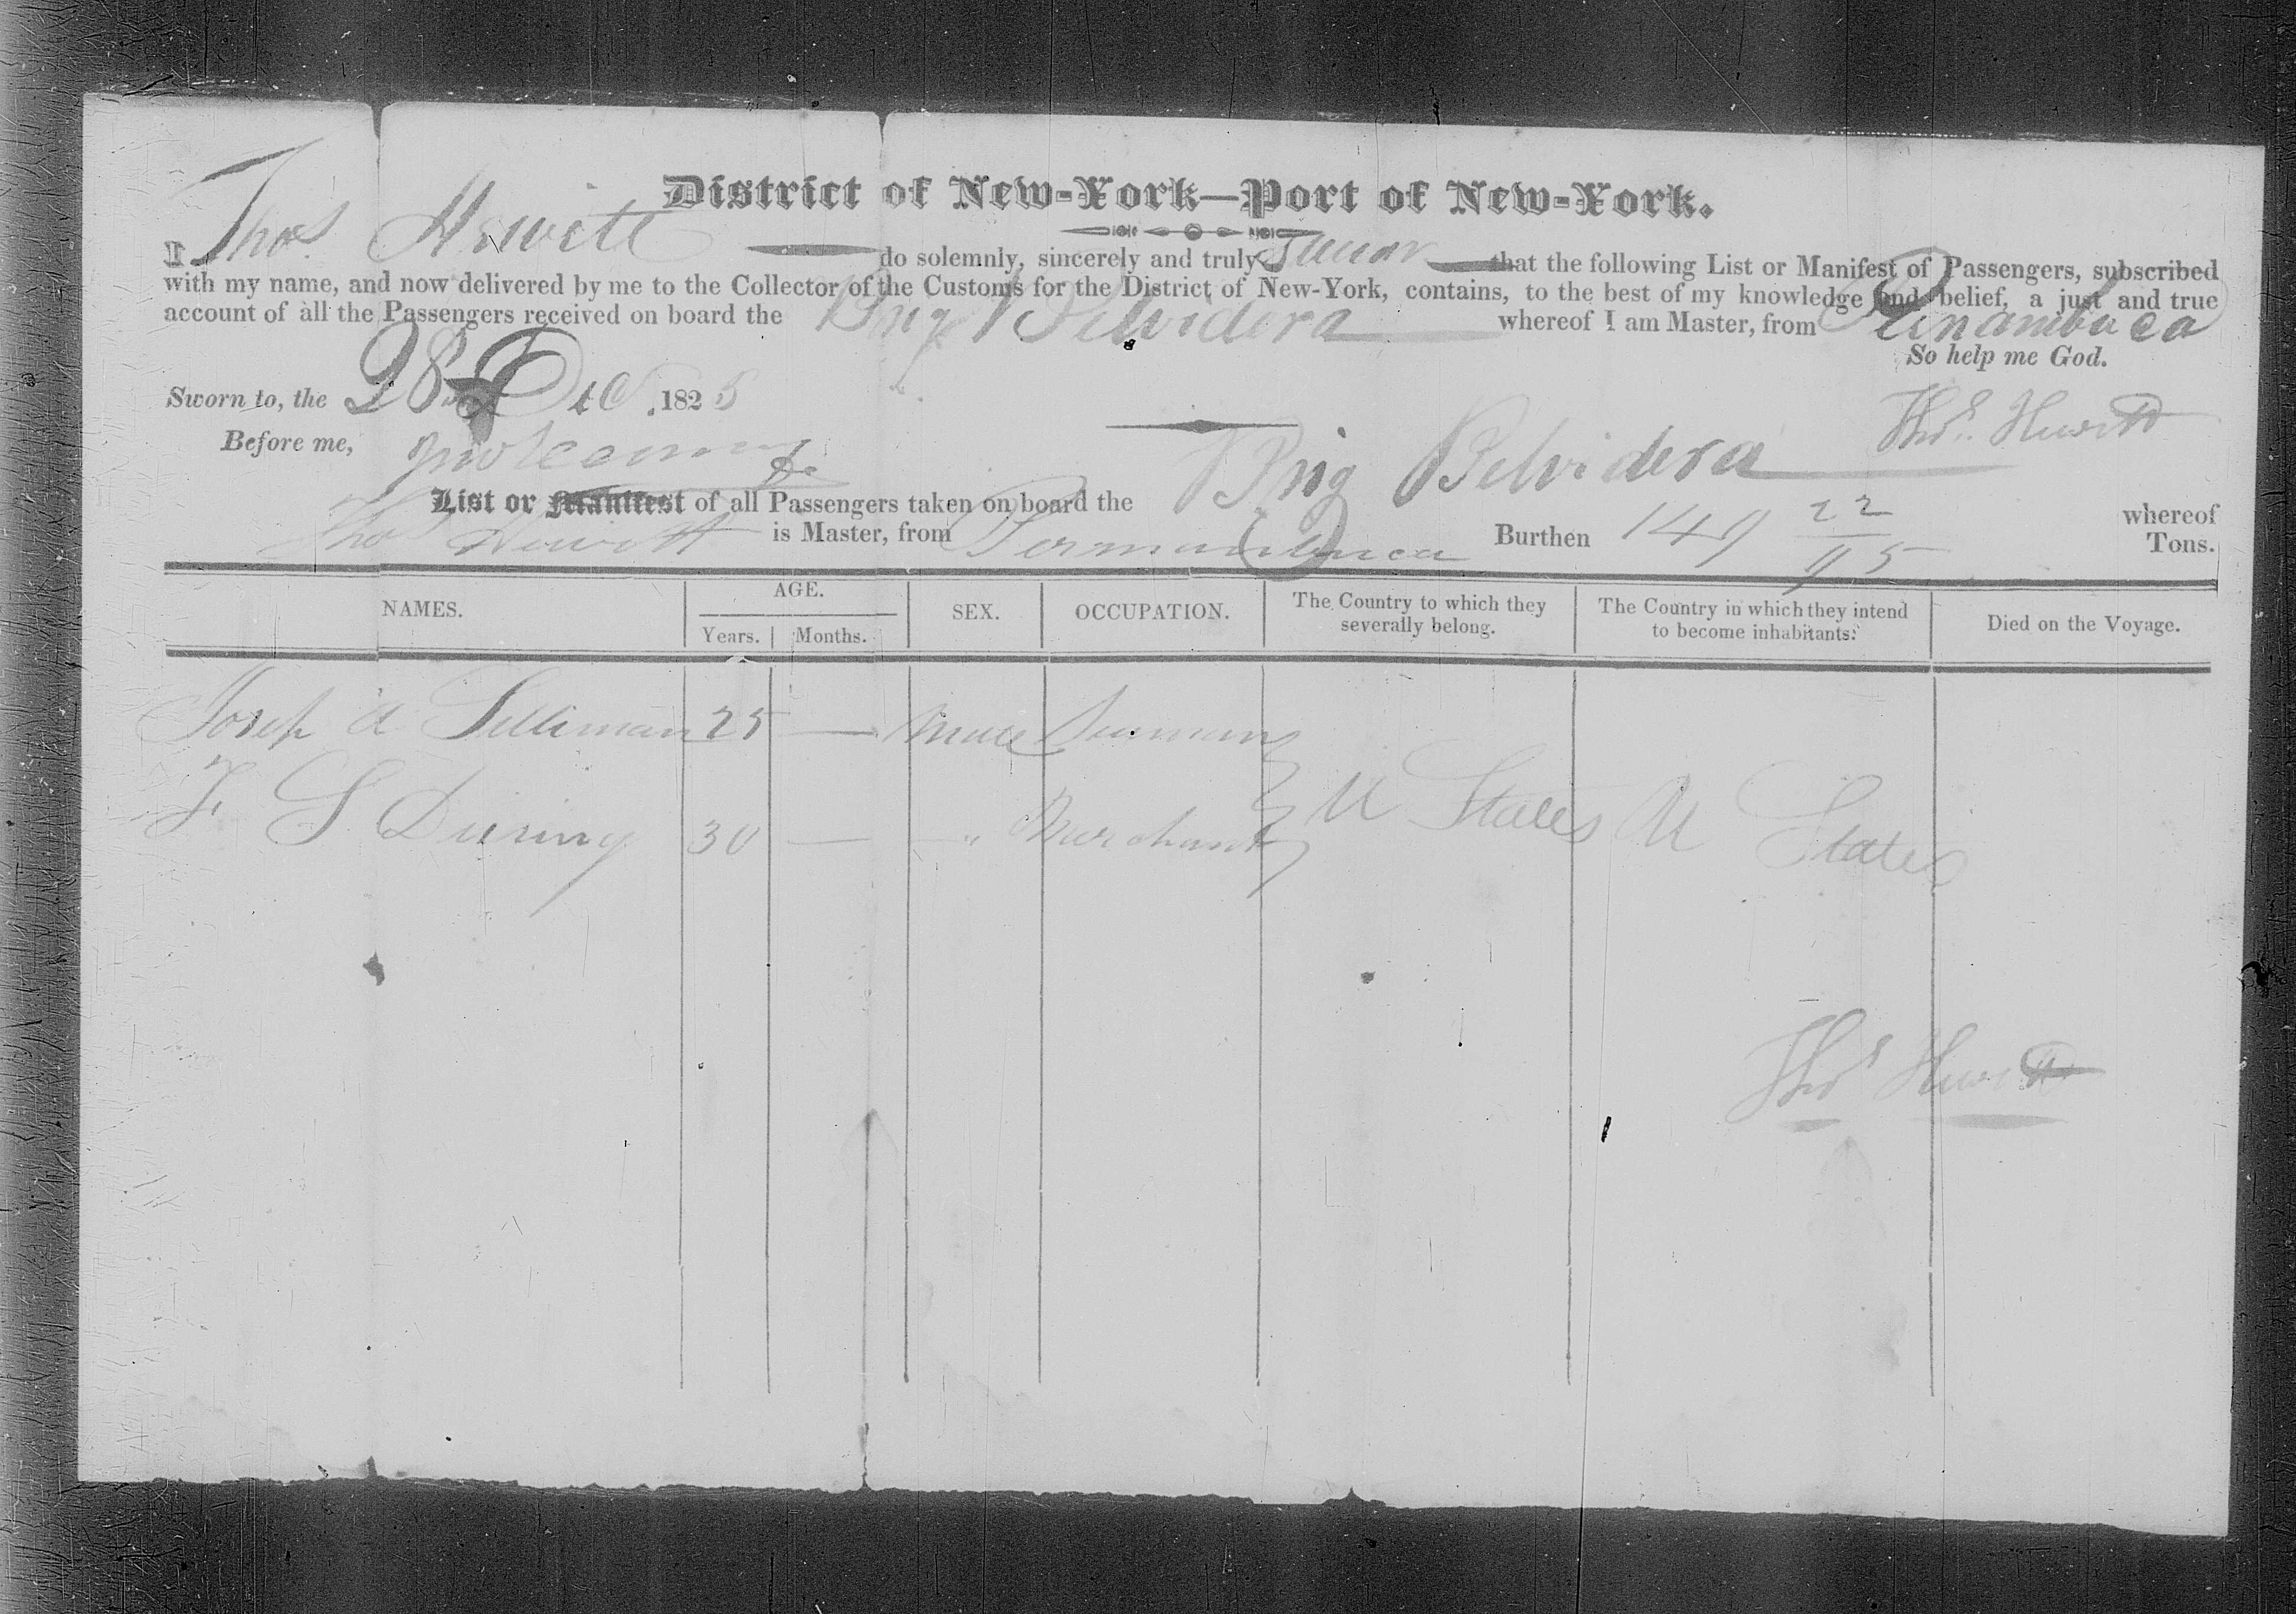 District of New-York—Port of New-York.
I Thos Hewitt do solemnly, sincerely and truly swear that the following List or Manifest of Passengers, subscribed
with my name, and now delivered by me to the Collector of the Customs for the District of New-York, contains, to the best of my knowledge and belief, a just and true
account of all the Passengers received on board the Brig Belvidera whereof I am Master, from Pernambuca
So help me God.
Sworn to, the 28 Dec 1825
Thos Hewitt
Before me,
List or Manifest of all Passengers taken on board the Brig Belvidera whereof
Thos Hewitt is Master, from Burthen 149 22/95 Tons.
NAMES. AGE. Years. Months. SEX. OCCUPATION. The Country to which they severally belong. The Country in which they intend to become inhabitants. Died on the Voyage.
Josep A Silliman 25 — Male
S 30 — " Merchant U States U States
Thos Hewitt